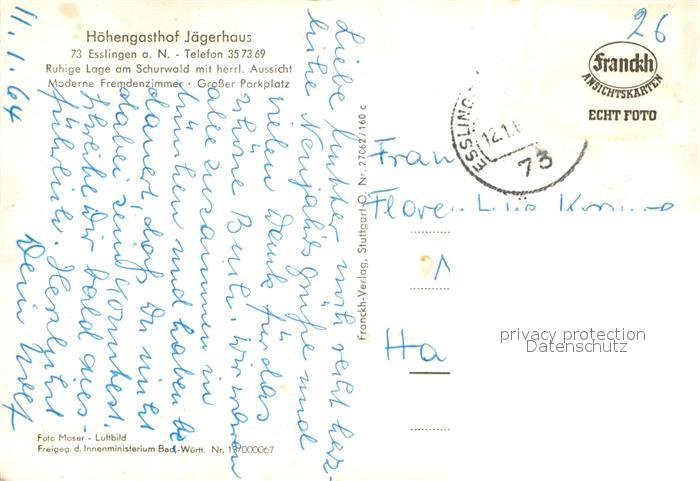 Höhengasthof Jägerhaus
73 Esslingen a. N. - Telefon 35 73 69
Ruhige Lage am Schurwald mit herrl. Aussicht
Moderne Fremdenzimmer · Großer Parkplatz
11. 1. 64
Liebe Mutter mit recht herz-
liche Neujahrsgrüße und
vielen Dank für das
schöne Buch. Wir waren
alle zusammen in
München und haben be
dauert, daß Du nicht
dabei sein konntest.
Schreibe Dir bald aus-
führlich. Herzlichst
Dein
Foto Moser - Luftbild
Freigeg. d. Innenministerium Bad.-Württ. Nr. 000067
Franckh-Verlag, Stuttgart-O. Nr. 27062/160 c
26
Franckh
ANSICHTSKARTEN
ECHT FOTO
ESSLING
12.1.
73
Frau
Ha
privacy protection
Datenschutz